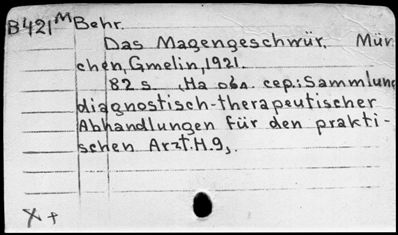 B421 M Behr.
Das Magengeschwür. Mün-
chen, Gmelin, 1921.
82 s. (На обл. сер.: Sammlung
diagnostisch-therapeutischer
Abhandlungen für den prakti-
schen Arzt. H. 9).
X +